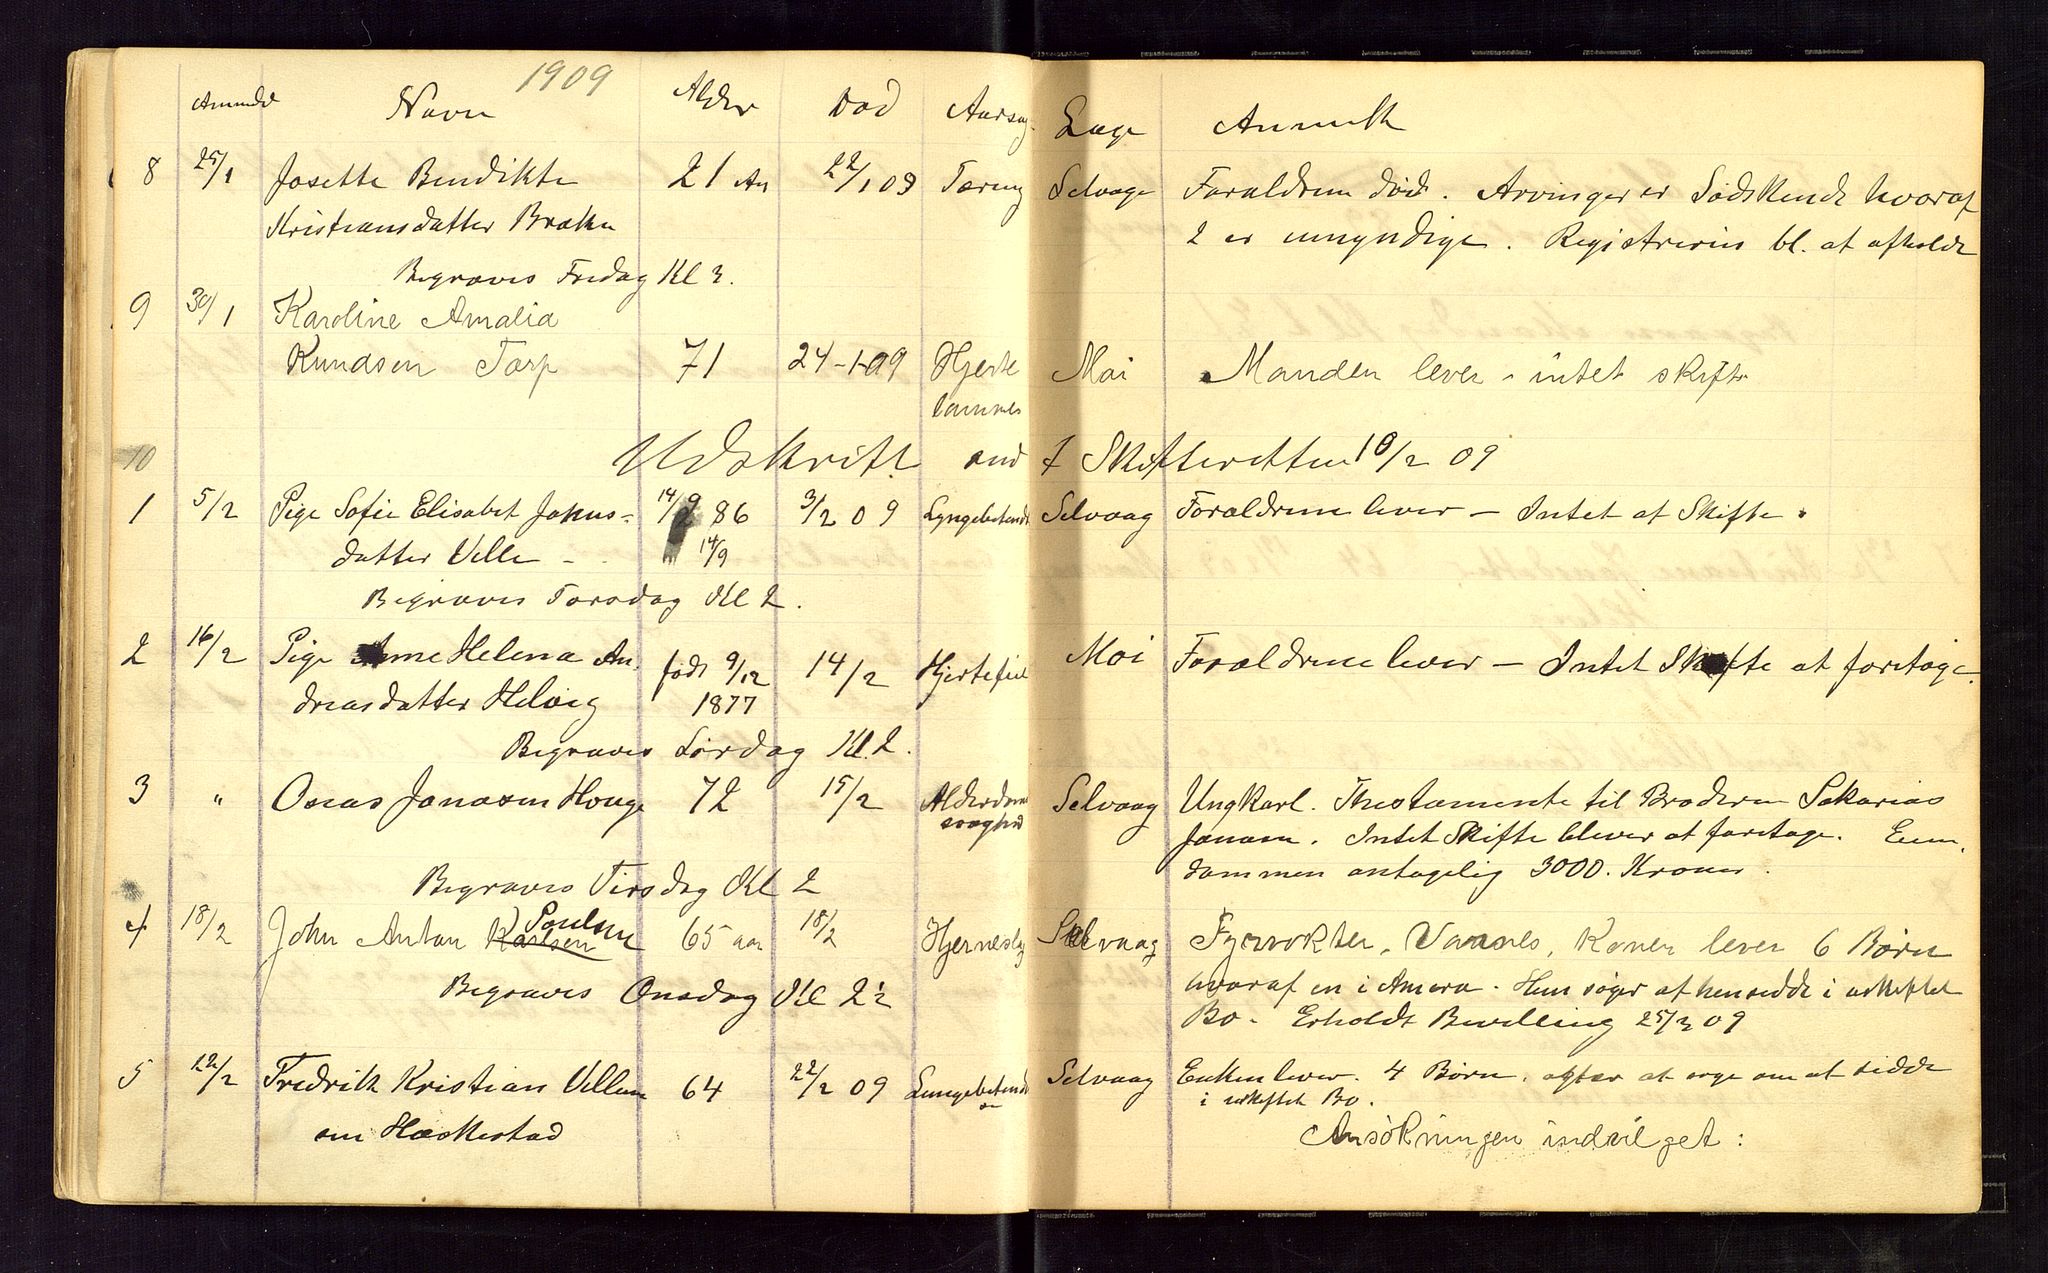 1909
Anmeldt Navn Alder Død Aarsag Læge Anmerk
8 25/1 Josette Bendikte 21 Aar 22/1 09 Tæring Selvaag Forældrene død. Arvinger er Sødskende hvoraf
Kristiansdatter Brækne 2 er umyndige. Registrering bl. at afholde
Begraves Fredag Kl 3.
9 30/1 Karoline Amalia
Knudsen Torp 71 24-1-09 Hjerte Moi Manden lever - intet skifte
lammes
10 Udskrift sendt Skifteretten 10/2 09
1 5/2 Pige Sofie Elisabet Jakus- 14/9 86 3/2 09 Lyngebetendt Selvaag Forældrene lever - Intet at Skifte.
datter Velle - 14/9
Begraves Torsdag Kl 2.
2 16/2 Pige Anne Helena An- født 9/12 14/2 Hjertefeil Moi Forældrene lever - Intet Skifte at foretage.
dreasdatter Helvig 1877
Begraves Lørdag Kl. 2.
3 " Osias Jonasen Houge 72 15/2 Alderdoms Selvaag Ungkarl. Thestamente til Broderen Sakarias
svaghed Jonasen. Intet Skifte bliver at foretage. Eien-
dommen antagelig 3000. Kroner.
Begraves Tirsdag Kl 2
4 18/2 John Anton Karlsen Poulsen 65 aar 18/2 Hjerneslag Selvaag Fyrvokter, Varnes, Konen lever 6 Børn
Begraves Onsdag Kl 2½ hvoraf en i Amera. Hun søger at hensidde i uskiftet
Bo. Erholdt Bevilling 25/3 09
5 22/2 Fredrik Kristian Villum 64 22/2 09 Lungebetendt Selvaag Enken lever. 4 Børn. agter at søge om at sidde
sen Hæskestad i uskiftet Bo.
Ansøkningen indvilget: